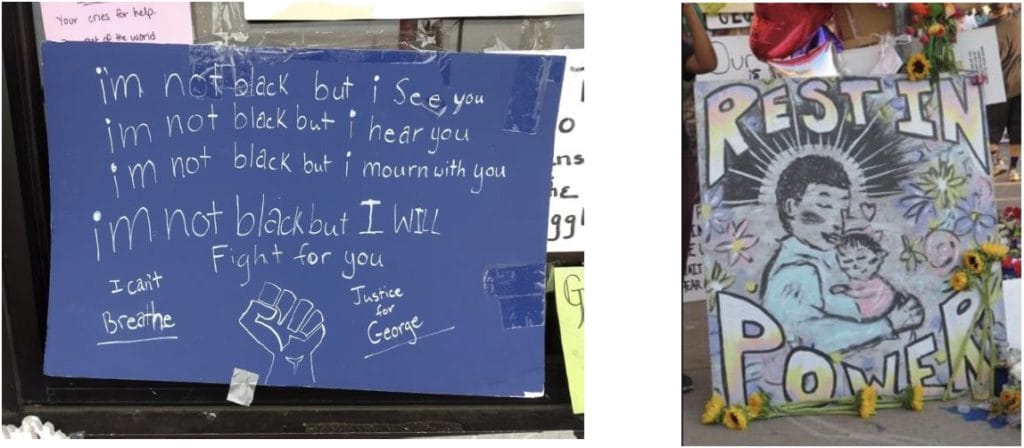 Your cries for help.
of the world
i'm not black but i see you
im not black but i hear you
im not black but i mourn with you
im not black but I WILL
Fight for you
I can't
Breathe
Justice
for
George
OUR
IS
REST IN
POWER